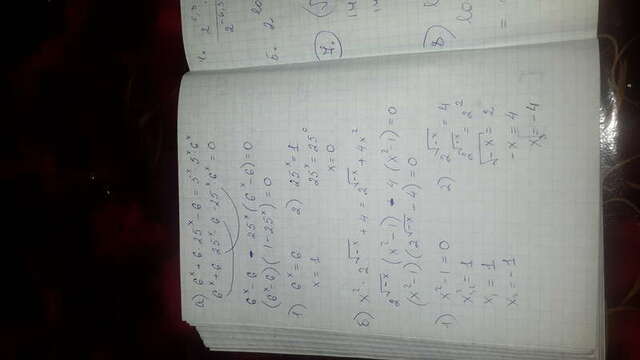 а) 6^x + 6·25^x − 6 = 5^x·5^x·6^x
6^x + 6·25^x − 6 − 25^x·6^x = 0
6^x − 6 − 25^x(6^x − 6) = 0
(6^x − 6)(1 − 25^x) = 0
1) 6^x = 6
x = 1
2) 25^x = 1
25^x = 25^0
x = 0
б) x^2·2^√−x + 4 = 2^√−x + 4x^2
2^√−x (x^2 − 1) − 4(x^2 − 1) = 0
(x^2 − 1)(2^√−x − 4) = 0
1) x^2 − 1 = 0
x^2 = 1
x₁ = 1
x₂ = −1
2) 2^√−x = 4
2^√−x = 2^2
√−x = 2
−x = 4
x₃ = −4
7.
8)